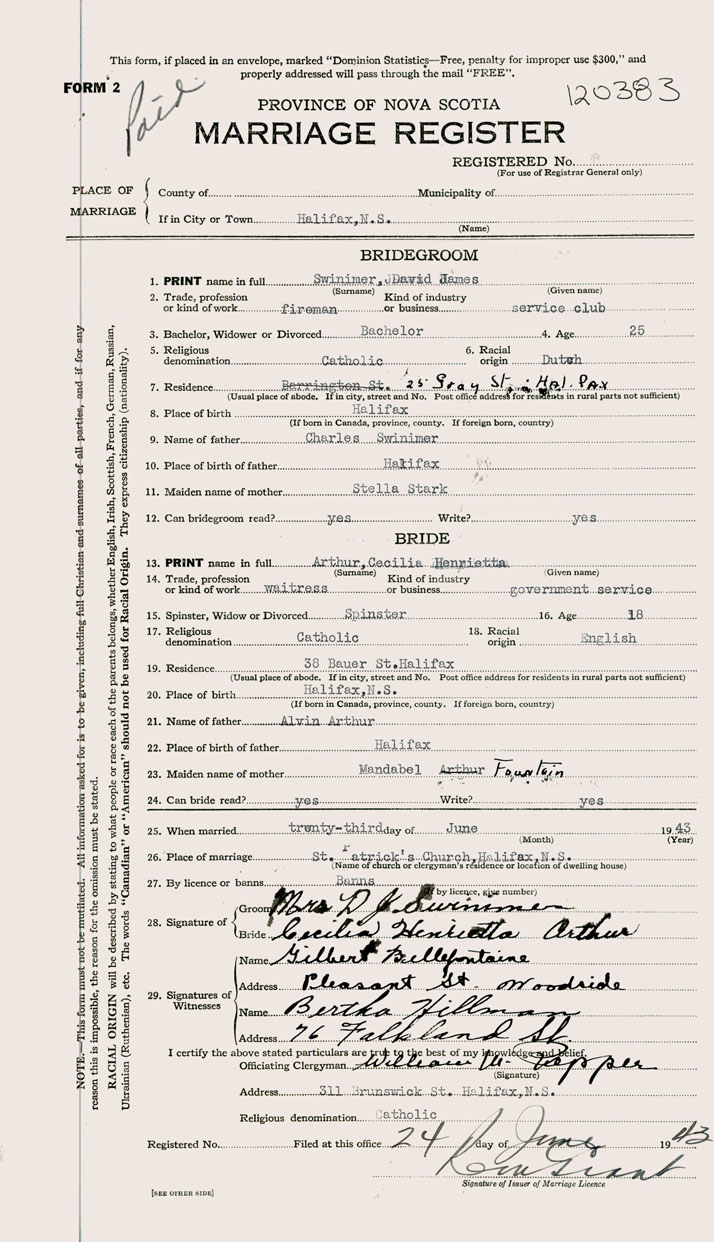 This form, if placed in an envelope, marked "Dominion Statistics—Free, penalty for improper use $300," and
properly addressed will pass through the mail "FREE".
FORM 2
Paid
120383
PROVINCE OF NOVA SCOTIA
MARRIAGE REGISTER
REGISTERED No.
(For use of Registrar General only)
PLACE OF MARRIAGE
County of Municipality of
If in City or Town Halifax,N.S.
(Name)
BRIDEGROOM
1. PRINT name in full Swinimer, David James
(Surname) (Given name)
2. Trade, profession or kind of work fireman Kind of industry or business service club
3. Bachelor, Widower or Divorced Bachelor 4. Age 25
5. Religious denomination Catholic 6. Racial origin Dutch
7. Residence Barrington St. 25 Gray St, Hal. Fax
(Usual place of abode. If in city, street and No. Post office address for residents in rural parts not sufficient)
8. Place of birth Halifax
(If born in Canada, province, county. If foreign born, country)
9. Name of father Charles Swinimer
10. Place of birth of father Halifax
11. Maiden name of mother Stella Stark
12. Can bridegroom read? yes Write? yes
BRIDE
13. PRINT name in full Arthur,Cecilia Henrietta
(Surname) (Given name)
14. Trade, profession or kind of work waitress Kind of industry or business government service
15. Spinster, Widow or Divorced Spinster 16. Age 18
17. Religious denomination Catholic 18. Racial origin English
19. Residence 38 Bauer St.Halifax
(Usual place of abode. If in city, street and No. Post office address for residents in rural parts not sufficient)
20. Place of birth Halifax,N.S.
(If born in Canada, province, county. If foreign born, country)
21. Name of father Alvin Arthur
22. Place of birth of father Halifax
23. Maiden name of mother Mandabel Arthur Fountain
24. Can bride read? yes Write? yes
25. When married twenty-third day of June 1943
(Month) (Year)
26. Place of marriage St. Patrick's Church,Halifax,N.S.
(Name of church or clergyman's residence or location of dwelling house)
27. By licence or banns Banns
(If by licence, give number)
28. Signature of
Groom Mrs D J Swinimer
Bride Cecilia Henrietta Arthur
29. Signatures of Witnesses
Name Gilbert Bellefontaine
Address Pleasant St. Woodside
Name Bertha Hillman
Address 76 Falkland St
I certify the above stated particulars are true to the best of my knowledge and belief.
Officiating Clergyman William M. Pepper
(Signature)
Address 311 Brunswick St. Halifax,N.S.
Religious denomination Catholic
Registered No. Filed at this office 24 day of June 1943
Grant
Signature of Issuer of Marriage Licence
[SEE OTHER SIDE]
NOTE.—This form must not be mutilated. All information asked for is to be given, including full Christian and surnames of all parties, and if for any
reason this is impossible, the reason for the omission must be stated.
RACIAL ORIGIN will be described by stating to what people or race each of the parents belongs, whether English, Irish, Scottish, French, German, Russian,
Ukrainian (Ruthenian), etc. The words "Canadian" or "American" should not be used for Racial Origin. They express citizenship (nationality).